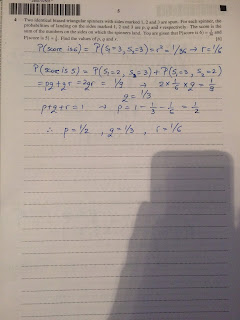 8
2 Two identical biased triangular spinners with sides marked 1, 2 and 3 are spun. For each spinner, the
probabilities of landing on the sides marked 1, 2 and 3 are p, q and r respectively. The score is the
sum of the numbers on the sides on which the spinners land. You are given that P(score is 6) = 1/36 and
P(score is 5) = 1/9. Find the values of p, q and r. [6]
P(score is 6) = P(S₁=3, S₂=3) = r² = 1/36 → r = 1/6
P(score is 5) = P(S₁=2, S₂=3) + P(S₁=3, S₂=2)
= qr + qr = 2qr = 1/9 → 2 x 1/6 x q = 1/9
q = 1/3
p+q+r = 1 → p = 1 - 1/3 - 1/6 = 1/2
∴ p = 1/2 , q = 1/3 , r = 1/6